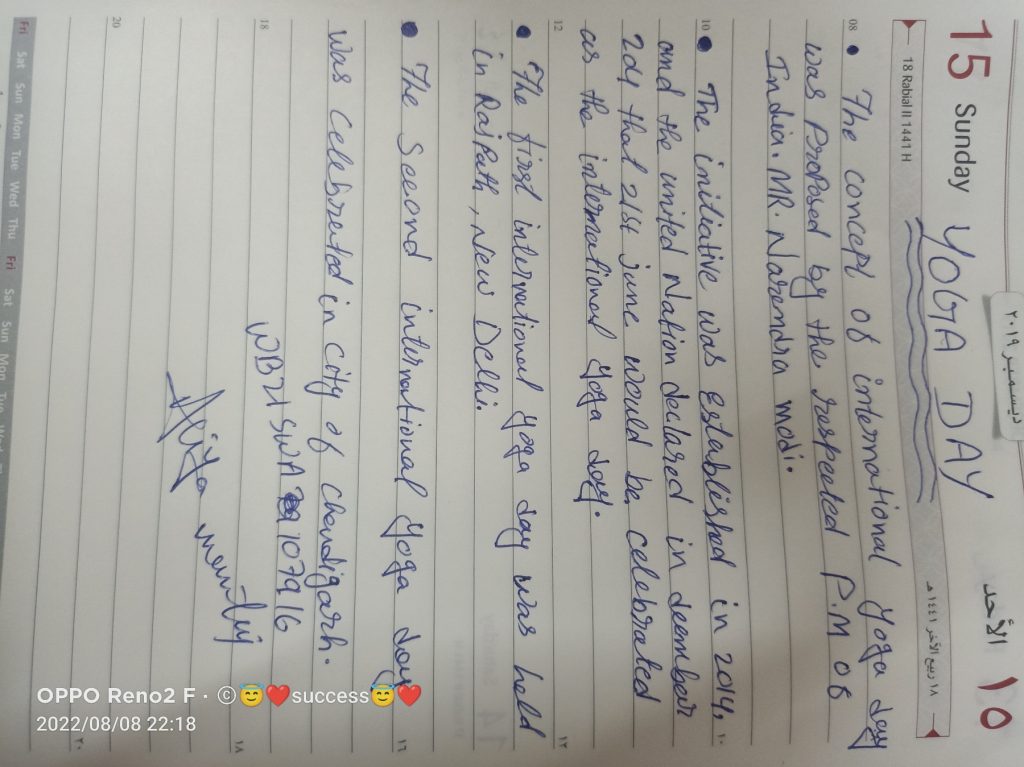 ديسمبر ٢٠١٩
15 Sunday
الأحد ١٥
YOGA DAY
18 Rabial II 1441 H
١٨ ربيع الآخر ١٤٤١ هـ
08 • The concept of international yoga day
was Proposed by the respected P.M of
India. MR. Narendra modi.
10 • The initiative was established in 2014, ١٠
and the united Nation declared in deember
2014 that 21st june would be celebrated
as the international yoga day.
12 ١٢
• The first international yoga day was held
in Rajpath, New Delhi.
• The Second international yoga day ١٦
was celebrated in city of chandigarh.
18 ١٨
WB21SWA 107916
20 ٢٠
Fri Sat Sun Mon Tue Wed Thu Fri Sat Sun Mon Tue Wed
OPPO Reno2 F · ©😇❤️success😇❤️
2022/08/08 22:18